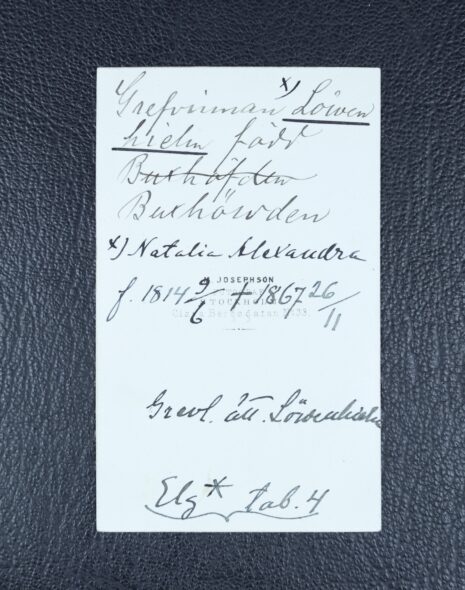 Grefvinnan x) Löwen
hielm född
Buxhöfden
Buxhöwden
x) Natalia Alexandra
M. JOSEPHSON
f. 1814 9/6 † 1867 26/11
STOCKHOLM
Clara Bergsgatan
Grevl. ätt. Löwenhielm
Elg* tab. 4